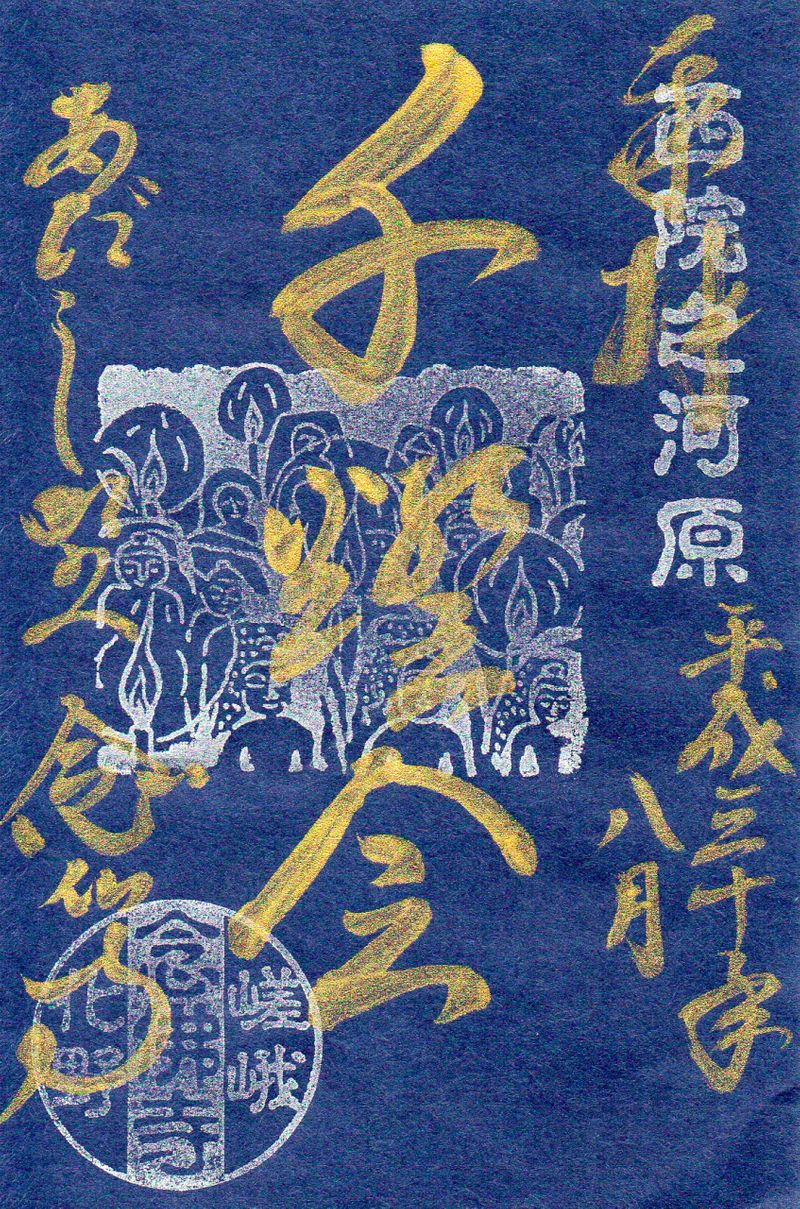 奉拝
西院之河原
平成三十年
八月
千燈会
あだし野念仏寺
嵯峨
念佛寺
化野